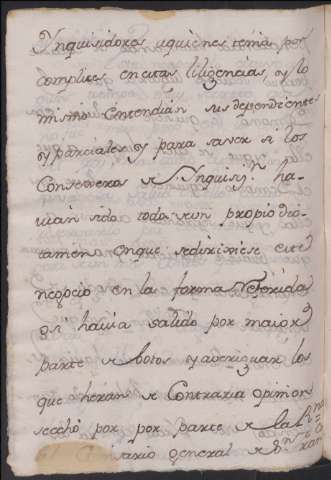 Ynquisidores aquienes tenia por
complices en estas diligencias, y lo
mismo entendian sus dependientes
y parciales y para saver si los
Consexeros de Ynquisi.n ha-
vian sido todos de un propio dic-
tamen en que se dixixiese este
negocio en la forma Referida
o si havia salido por maior
parte de botos y averiguar los
que heran de Contraria opinion
se echó por por parte de la
general de